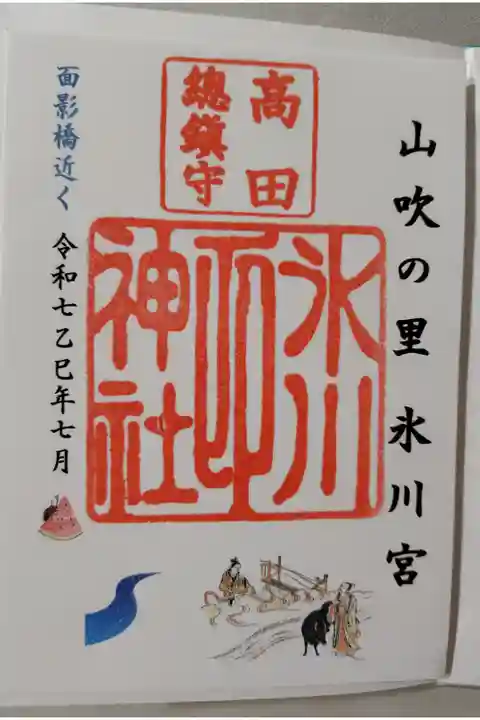 山吹の里 氷川宮
高田
總鎮守
氷川
神社
面影橋近く 令和七乙巳年七月